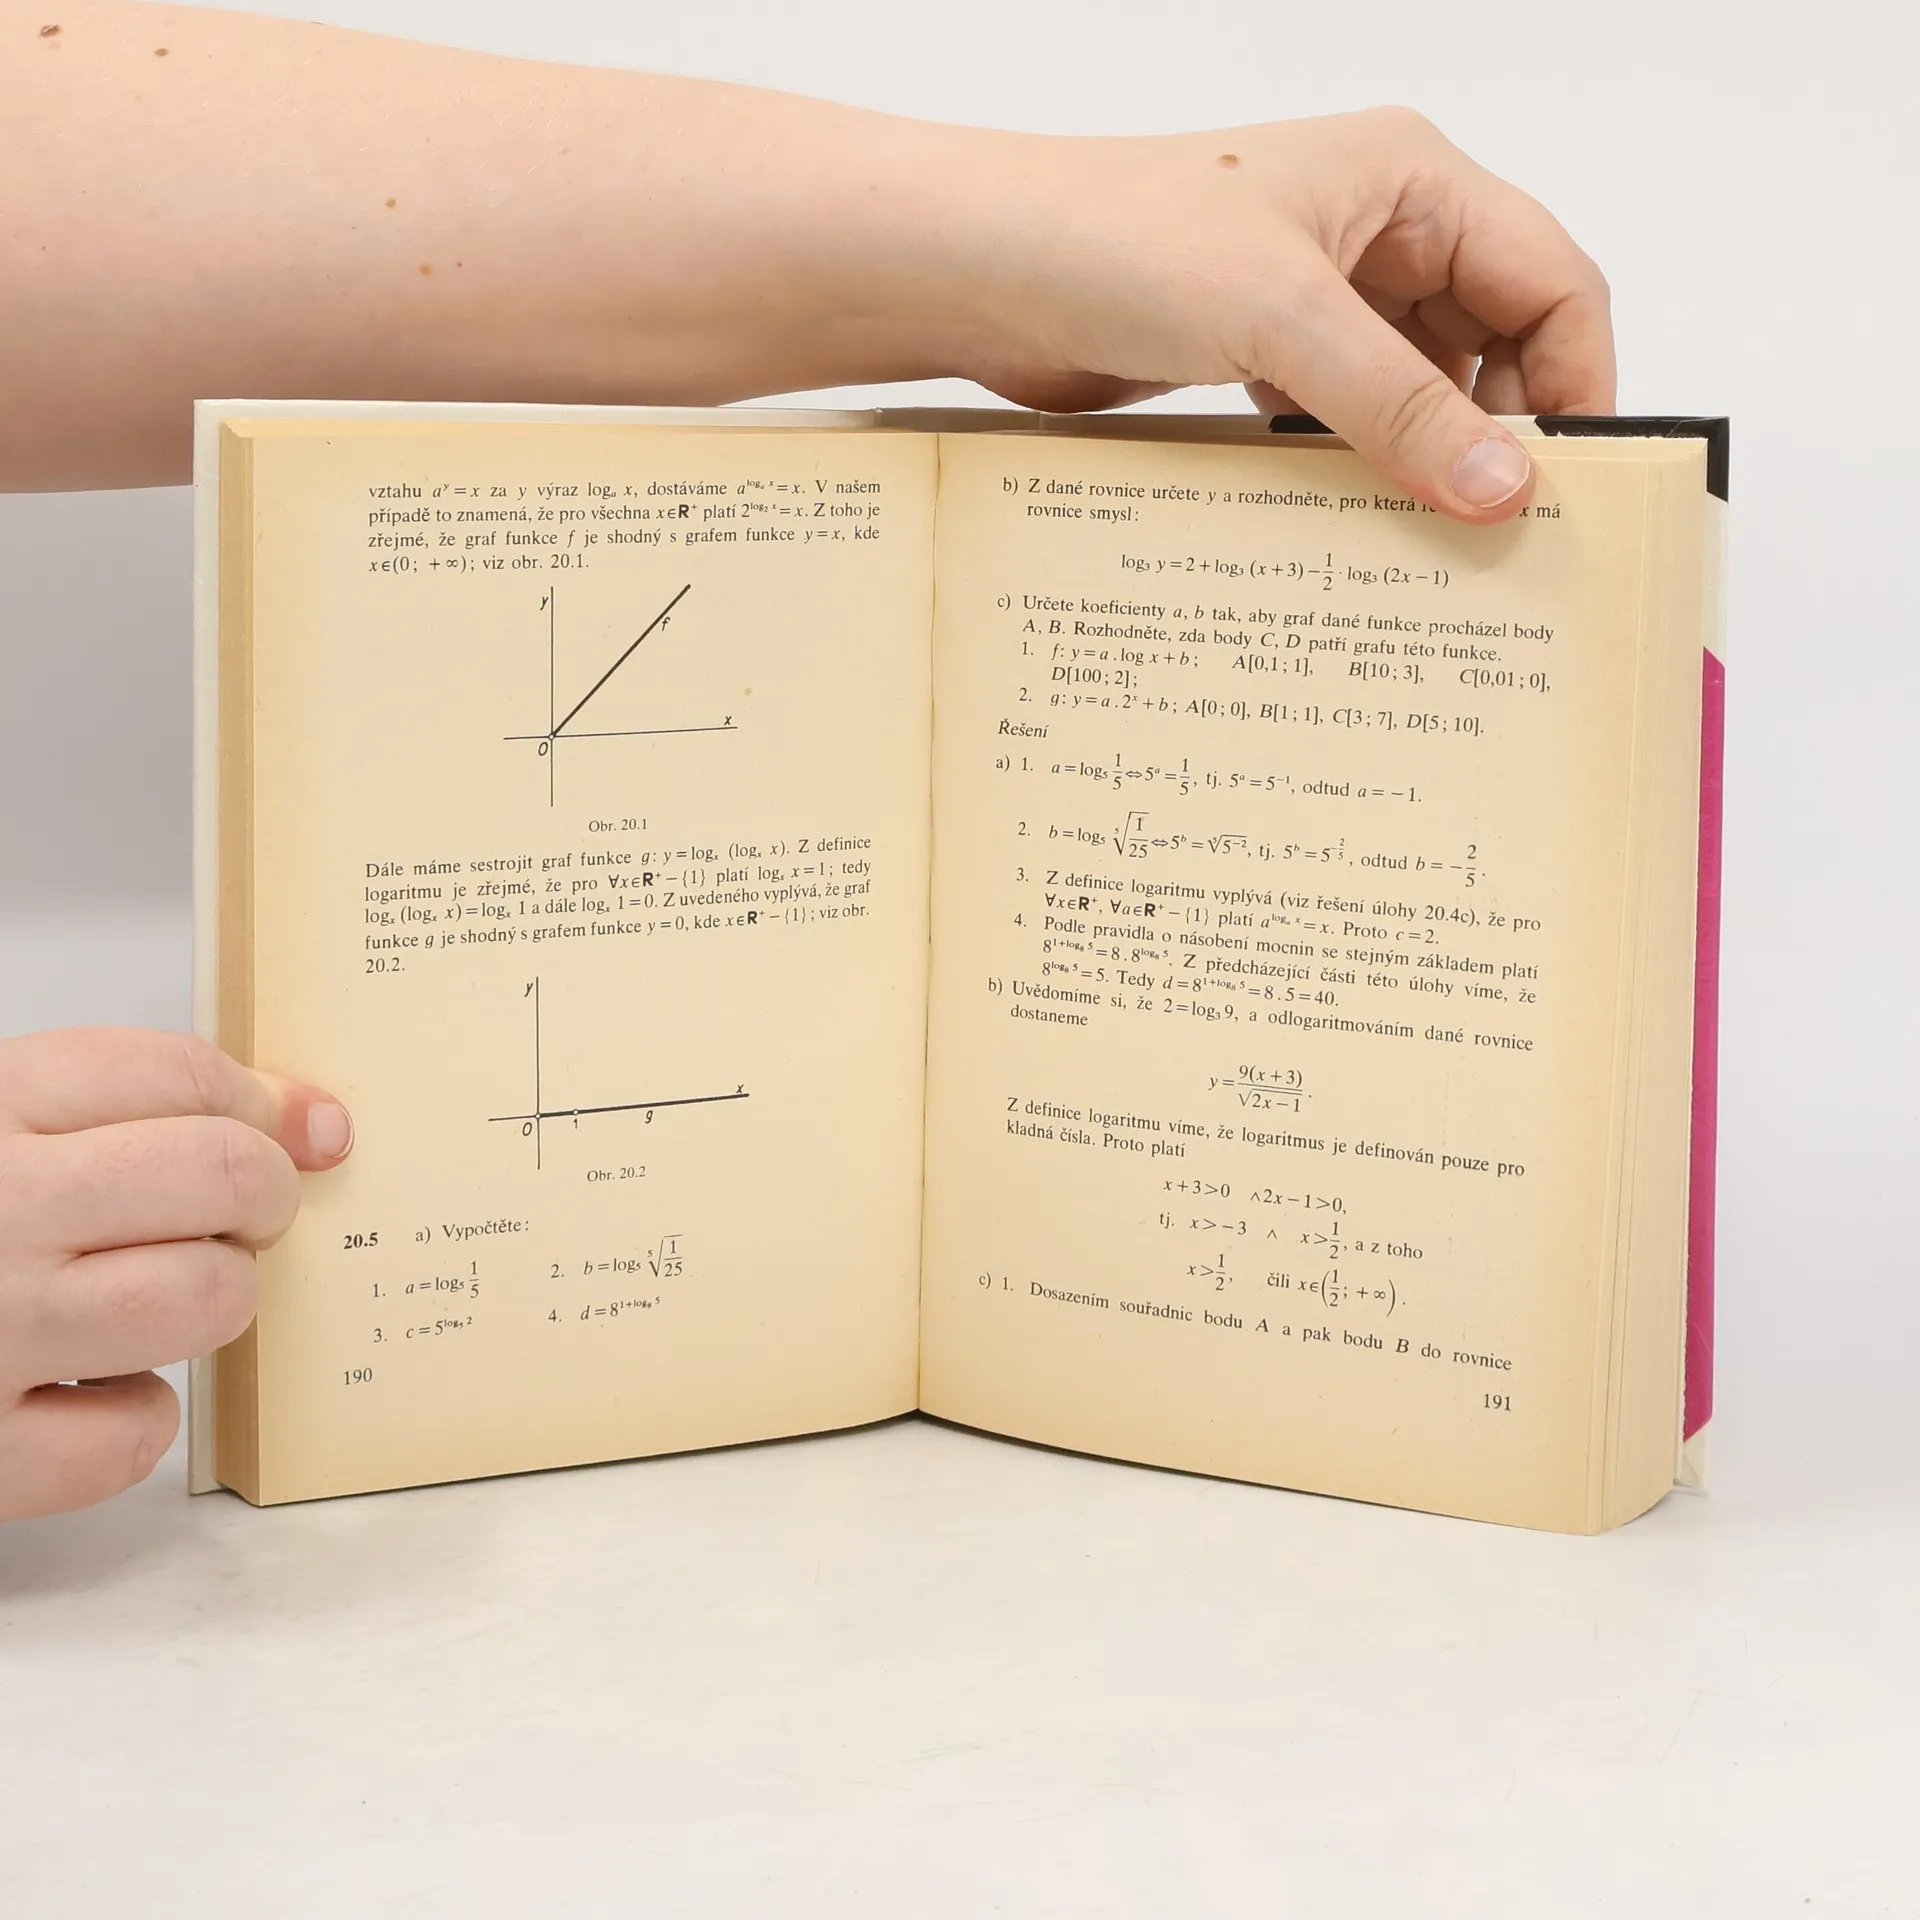 vztahu aʸ = x za y výraz logₐ x, dostáváme a^(logₐ x) = x. V našem
případě to znamená, že pro všechna x∈R⁺ platí 2^(log₂ x) = x. Z toho je
zřejmé, že graf funkce f je shodný s grafem funkce y = x, kde
x∈(0; +∞); viz obr. 20.1.
y
f
x
O
Obr. 20.1
Dále máme sestrojit graf funkce g: y = logₓ (logₓ x). Z definice
logaritmu je zřejmé, že pro ∀x∈R⁺ − {1} platí logₓ x = 1; tedy
logₓ (logₓ x) = logₓ 1 a dále logₓ 1 = 0. Z uvedeného vyplývá, že graf
funkce g je shodný s grafem funkce y = 0, kde x∈R⁺ − {1}; viz obr.
20.2.
y
x
O 1 g
Obr. 20.2
20.5 a) Vypočtěte:
1. a = log₅ 1/5 2. b = log₅ ⁵√(1/25)
3. c = 5^(log₅ 2) 4. d = 8^(1+log₈ 5)
190
b) Z dané rovnice určete y a rozhodněte, pro která x má
rovnice smysl:
log₃ y = 2 + log₃ (x + 3) − 1/2 · log₃ (2x − 1)
c) Určete koeficienty a, b tak, aby graf dané funkce procházel body
A, B. Rozhodněte, zda body C, D patří grafu této funkce.
1. f: y = a . log x + b; A[0,1; 1], B[10; 3], C[0,01; 0],
D[100; 2];
2. g: y = a . 2ˣ + b; A[0; 0], B[1; 1], C[3; 7], D[5; 10].
Řešení
a) 1. a = log₅ 1/5 ⇔ 5ᵃ = 1/5, tj. 5ᵃ = 5⁻¹, odtud a = −1.
2. b = log₅ ⁵√(1/25) ⇔ 5ᵇ = ⁵√(5⁻²), tj. 5ᵇ = 5^(−2/5), odtud b = −2/5.
3. Z definice logaritmu vyplývá (viz řešení úlohy 20.4c), že pro
∀x∈R⁺, ∀a∈R⁺ − {1} platí a^(logₐ x) = x. Proto c = 2.
4. Podle pravidla o násobení mocnin se stejným základem platí
8^(1+log₈ 5) = 8 . 8^(log₈ 5). Z předcházející části této úlohy víme, že
8^(log₈ 5) = 5. Tedy d = 8^(1+log₈ 5) = 8 . 5 = 40.
b) Uvědomíme si, že 2 = log₃ 9, a odlogaritmováním dané rovnice
dostaneme
y = 9(x + 3)/√(2x − 1).
Z definice logaritmu víme, že logaritmus je definován pouze pro
kladná čísla. Proto platí
x + 3 > 0 ∧ 2x − 1 > 0,
tj. x > −3 ∧ x > 1/2, a z toho
x > 1/2, čili x∈(1/2; +∞).
c) 1. Dosazením souřadnic bodu A a pak bodu B do rovnice
191